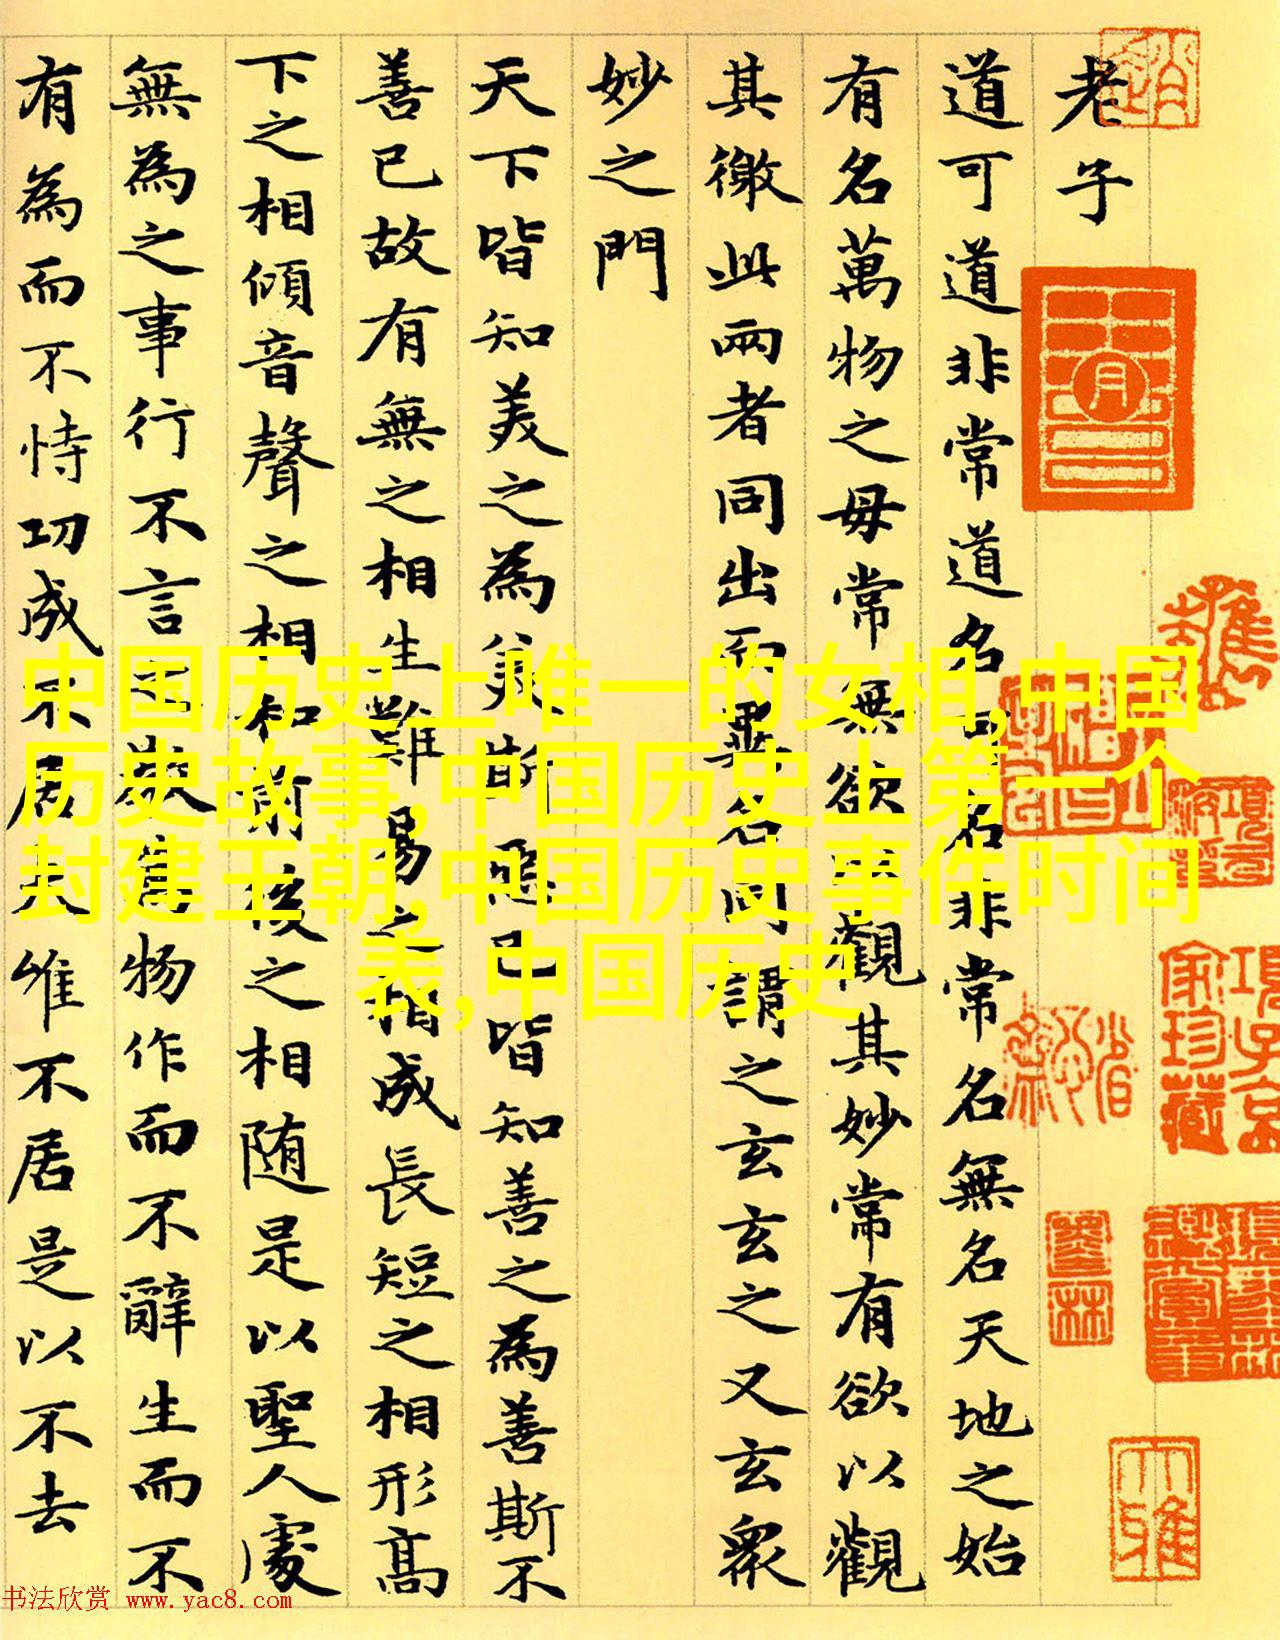 老子
道可道非常道名可名非常名無名天地之始
有名萬物之母常無欲以觀其妙常有欲以觀
其徼此兩者同出而異名同謂之玄玄之又玄衆
妙之門
天下皆知美之為美斯惡已皆知善之為善斯不
善已故有無之相生難易之相成長短之相形高
下之相傾音聲之相和前後之相随是以聖人處
無為之事行不言之教萬物作而不辭生而不
有為而不恃功成不居夫惟不居是以不去
中国历史上唯一的女相,中国
历史故事,中国历史上第一个
封建王朝,中国历史事件时间
表,中国历史
項子京
家珍藏
书法欣赏 www.yac8.com